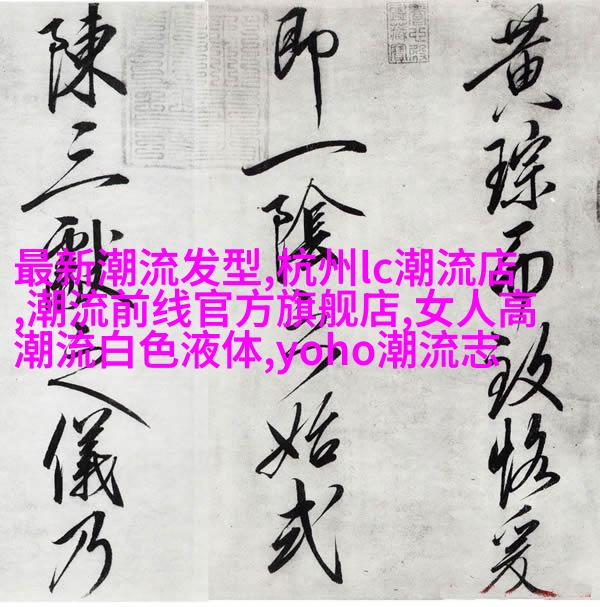 黄琮而致恪爰
即一陰之始式
陳三獻之儀乃
最新潮流发型,杭州lc潮流店
,潮流前线官方旗舰店,女人高
潮流白色液体,yoho潮流志